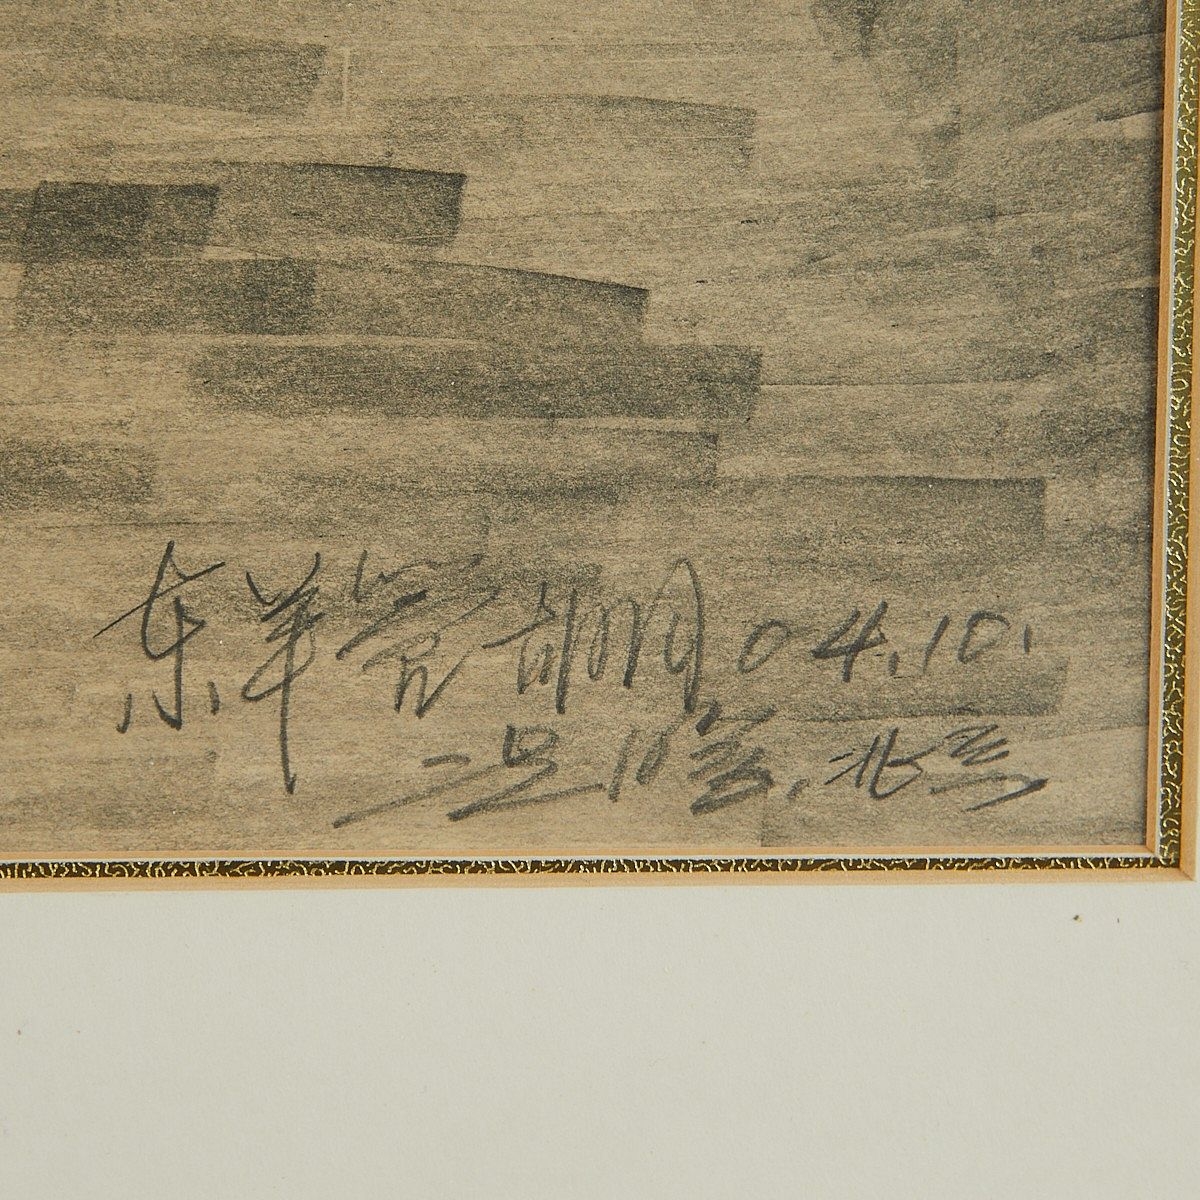 东羊管胡同 04.10.
二号10会.北京